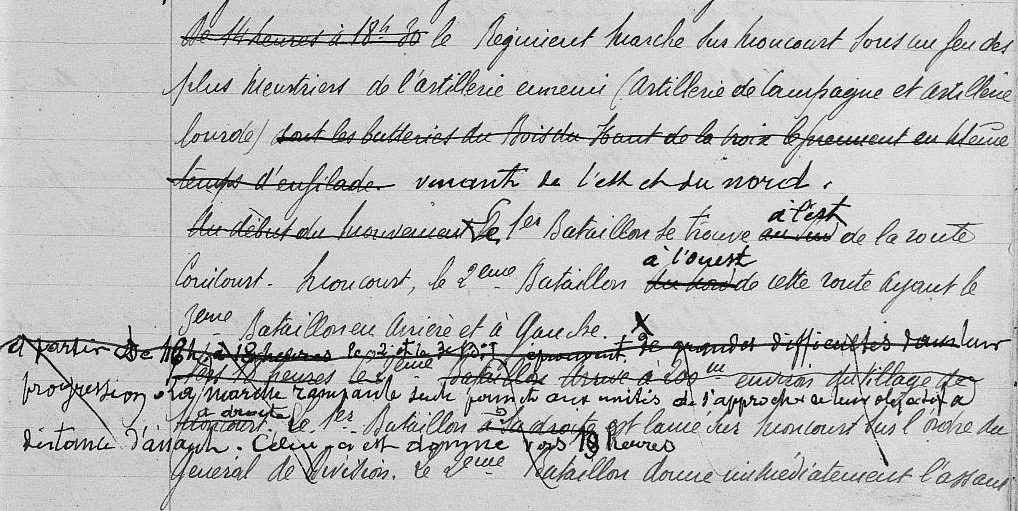 De 14 heures à 18h 30 le Régiment marche sur Moncourt sous un feu des
plus meurtriers de l'artillerie ennemie (Artillerie de Campagne et Artillerie
lourde) dont les batteries du Bois du Haut de la Croix le prennent en même
temps d'enfilade venant de l'est et du nord.
à l'est
Au début du mouvement le 1er Bataillon se trouve au sud de la route
à l'ouest
Coincourt - Moncourt, le 2eme Bataillon au nord de cette route ayant le
3eme Bataillon en arrière et à Gauche. X
A partir de 16h à 18 heures le 2 et le 3e éprouvent de grandes difficultés dans leur
Vers 18 heures le 2eme Bataillon arrive à 200m environ du village de
progression. La marche rampante seule permet aux unités de l'approche
à droite
Moncourt. le 1er Bataillon à sa droite est lancé sur Moncourt sur l'ordre du
distance d'assaut. Celui-ci est donné vers 19 heures
Général de Division. Le 2eme Bataillon donne immédiatement l'assaut